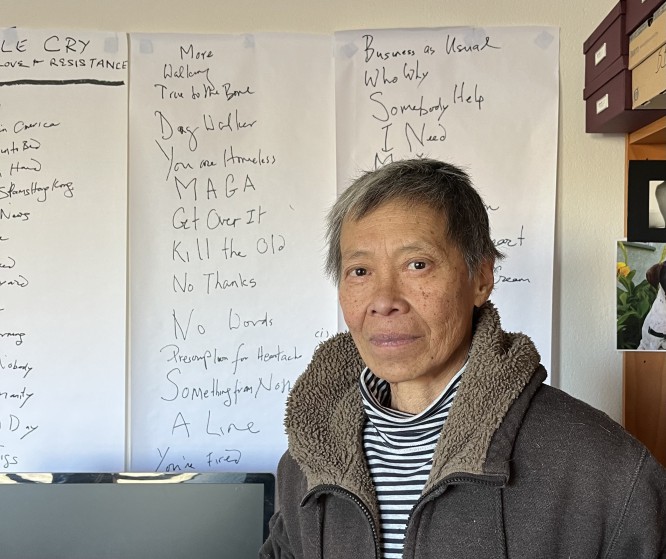 LE CRY
LOVE & RESISTANCE
in America
in to Bed
Hand
Hong Kong
News
ard
Nobody
anity
Day
More
Walking
True to the Bone
Dog Walker
You are Homeless
MAGA
Get Over It
Kill the Old
No Thanks
No Words
Prescription for Heartache
Something from No
A Line
You're Fired
Business as Usual
Who Why
Somebody Help
I Need
art
ream